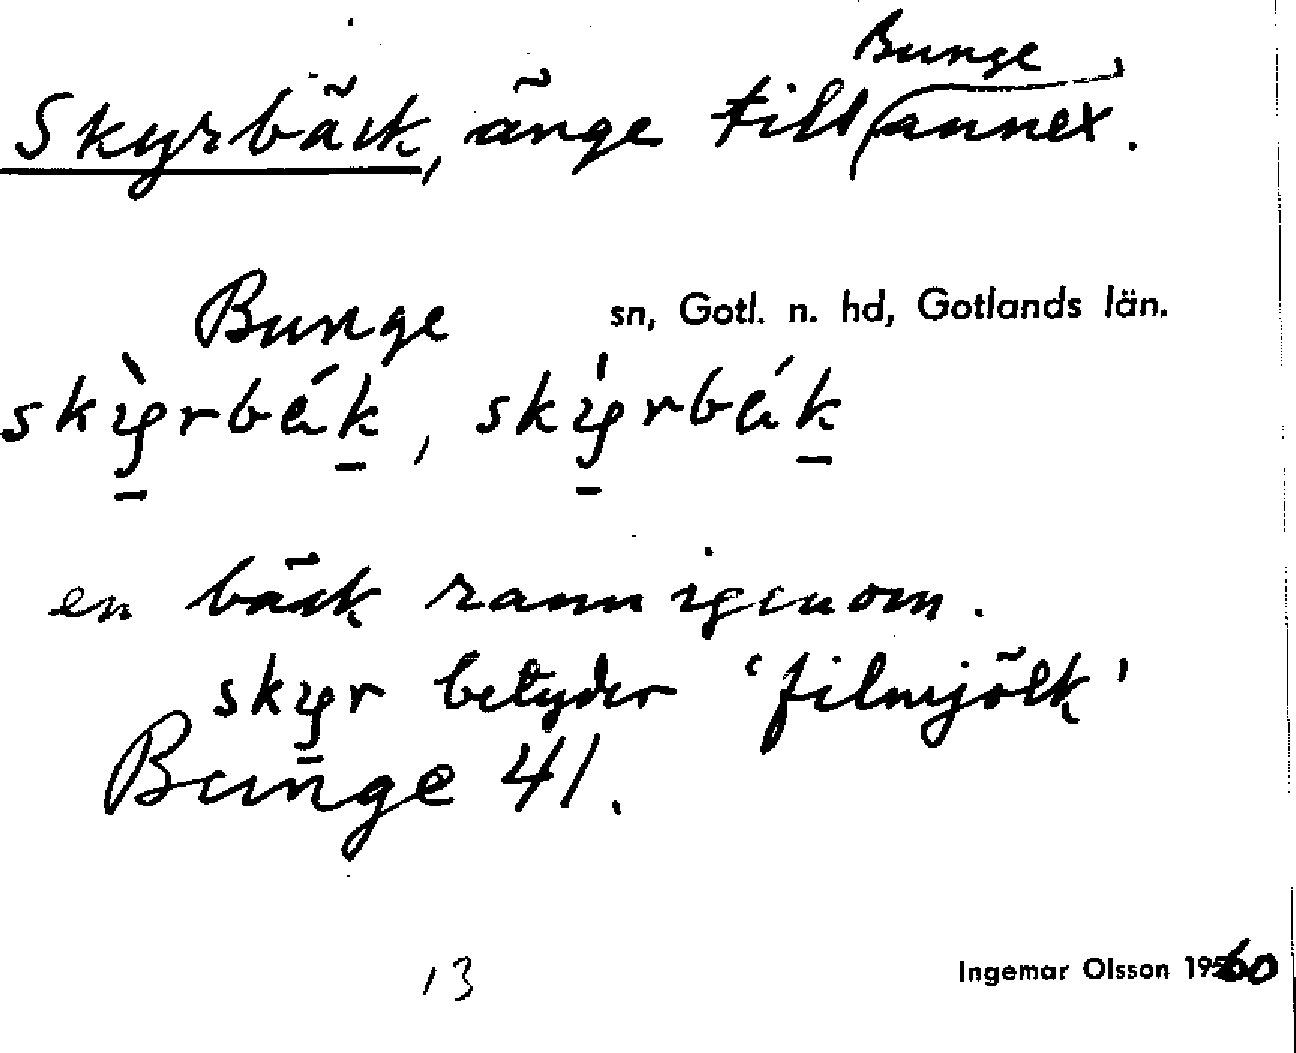 Bunge
Skyrbäck, änge till annex.
Bunge sn, Gotl. n. hd, Gotlands län.
skỳrbák, skýrbák
en bäck rann igenom.
skyr betyder 'filmjölk'
Bunge 41.
13
Ingemar Olsson 1960